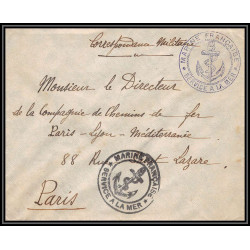 Correspondance Militaire
MARINE FRANÇAISE
SERVICE A LA MER
Monsieur le Directeur
de la Compagnie de Chemins de fer
Paris-Lyon-Méditerranée
88 Rue St Lazare
Paris
MARINE FRANÇAISE
SERVICE A LA MER